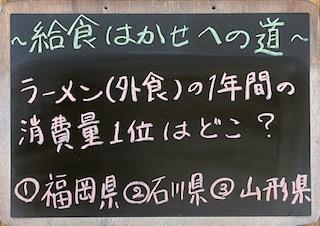 ～給食はかせへの道～
ラーメン(外食)の1年間の
消費量1位はどこ？
①福岡県②石川県③山形県